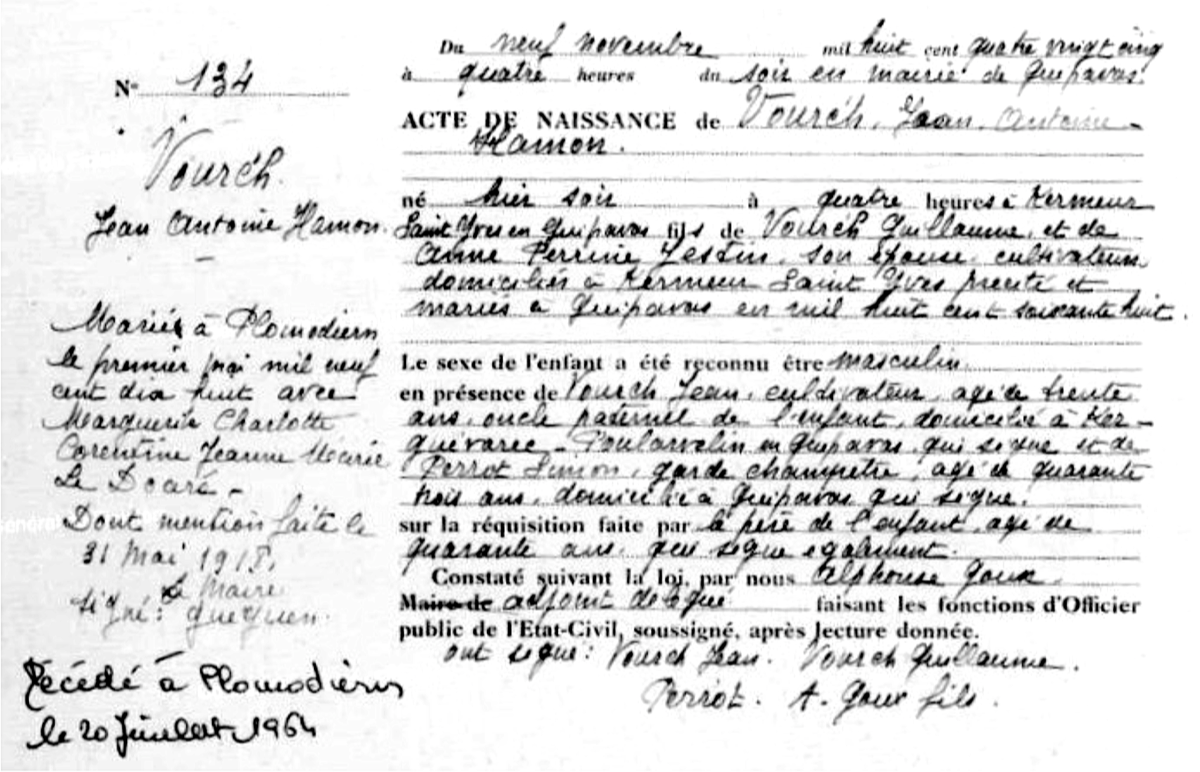 N° 134
Vourc'h.
Jean Antoine Hamon.
Mariés à Plomodiern
le premier mai mil neuf
cent dix huit avec
Marguerite Charlotte
Corentine Jeanne Marie
Le Doaré -
Dont mention faite le
31 Mai 1918.
Le Maire
signé: Queguen.
Décédé à Plomodiern
le 20 Juillet 1964
Du neuf novembre mil huit cent quatre vingt cinq
à quatre heures du soir en mairie de Guipavas.
ACTE DE NAISSANCE de Vourc'h, Jean, Antoine -
Hamon.
né hier soir à quatre heures à Kermeur
Saint Yves en Guipavas fils de Vourc'h Guillaume, et de
Anne Perrine Jestin, son épouse, cultivateurs
domiciliés à Kermeur Saint Yves précité et
mariés à Guipavas en mil huit cent soixante huit.
Le sexe de l'enfant a été reconnu être masculin.
en présence de Vourch Jean, cultivateur, agé de trente
ans, oncle paternel de l'enfant, domicilié à Ker-
guévarec - en Guipavas, qui signe et de
Perrot Simon, garde champêtre, agé de quarante
trois ans, domicilié à Guipavas qui signe.
sur la réquisition faite par le père de l'enfant, agé de
quarante ans, qui signe egalement.
Constaté suivant la loi, par nous Alphonse Goux.
Maire de adjoint delegué faisant les fonctions d'Officier
public de l'Etat-Civil, soussigné, après lecture donnée.
ont signé: Vourch Jean. Vourch Guillaume.
Perrot. A. Goux fils.